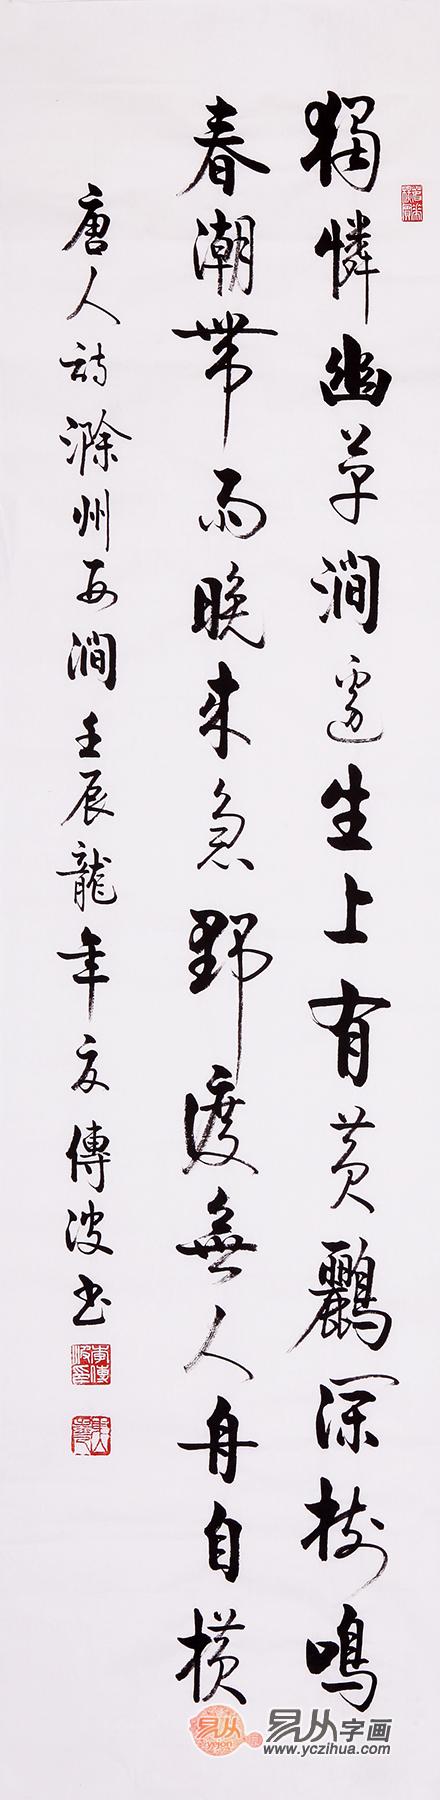 獨憐幽草澗邊生上有黃鸝深樹鳴
春潮帶雨晚來急野渡無人舟自橫
唐人詩滁州西澗壬辰龍年夏傳波書
易从
易从字画
www.yczihua.com